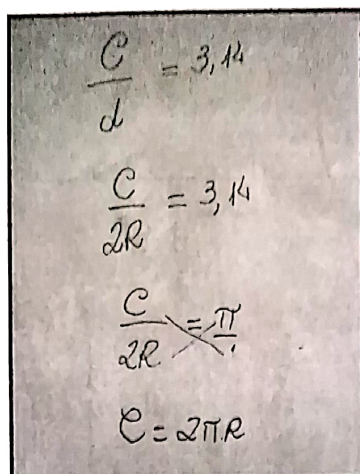 C/d = 3,14
C/2R = 3,14
C/2R = π/1
C = 2πR